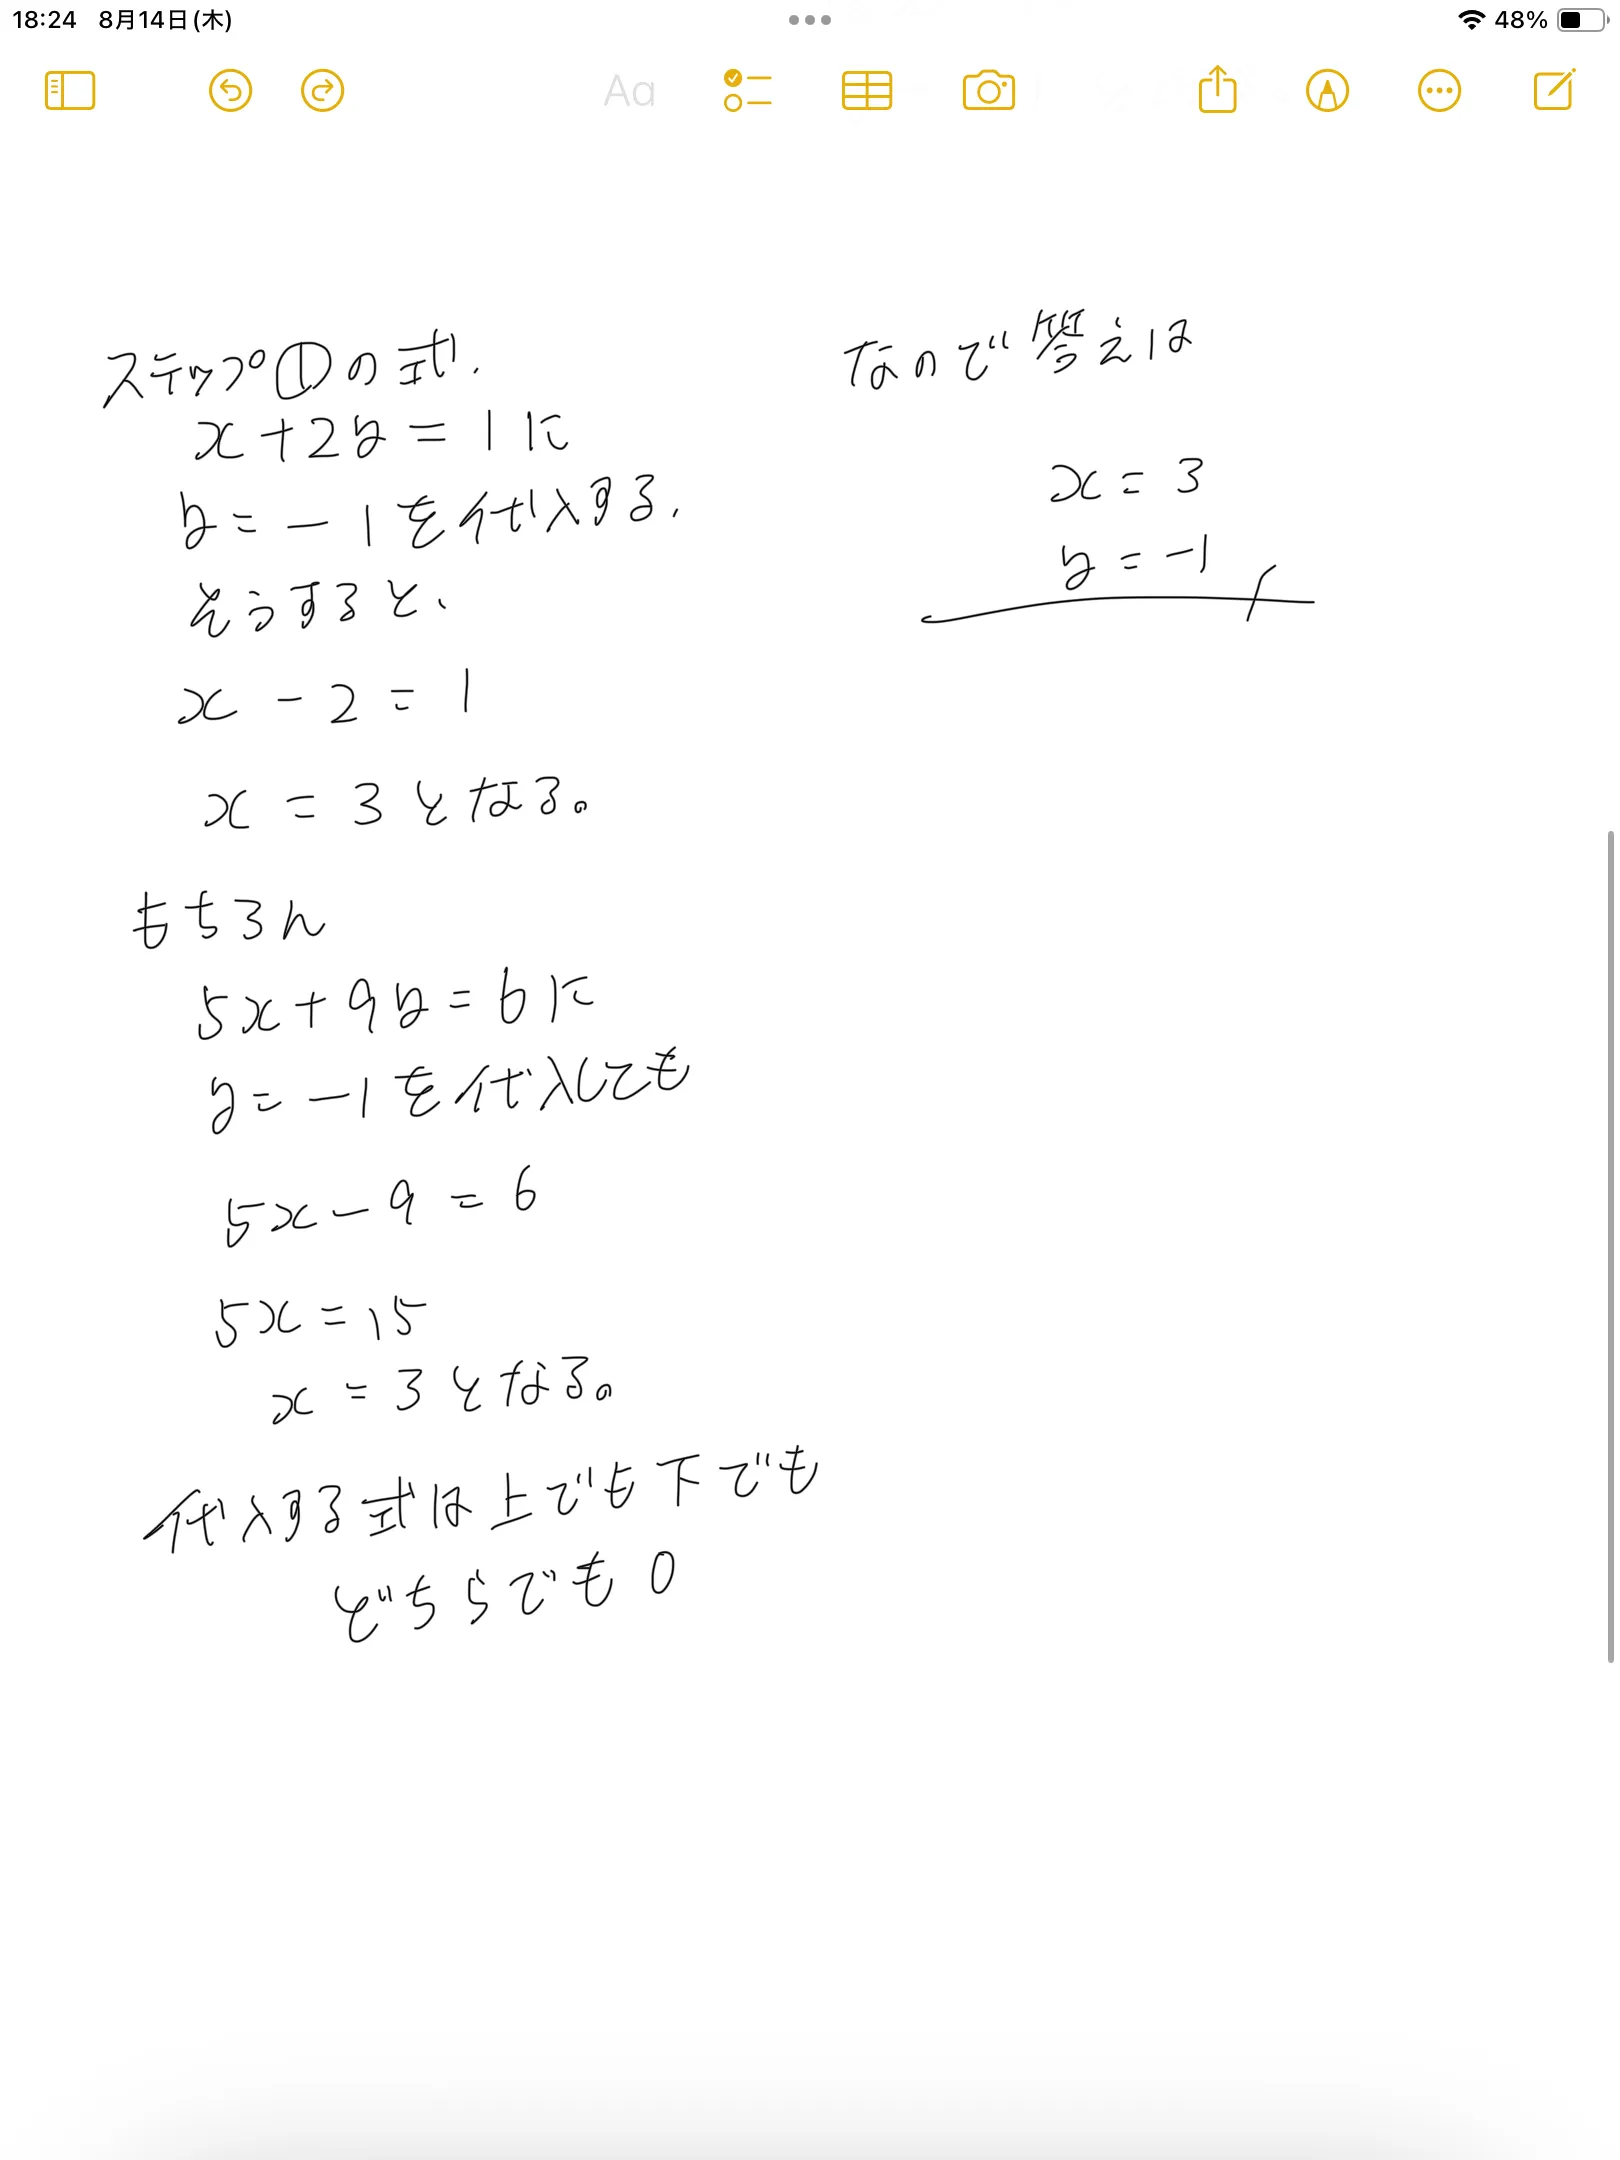 18:24 8月14日(木)
48%
Aa
ステップ①の式.
x+2y=1に
y=-1を代入する.
そうすると、
x-2=1
x=3となる。
もちろん
5x+9y=6に
y=-1を代入しても
5x-9=6
5x=15
x=3となる。
代入する式は上でも下でも
どちらでも○
なので答えは
x=3
y=-1